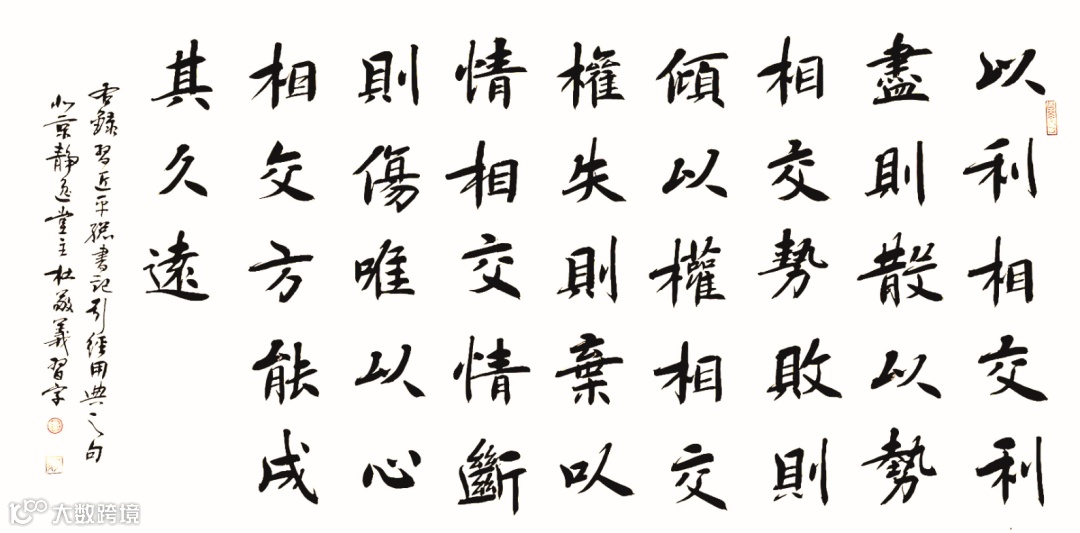 以利相交利
盡則散以勢
相交勢敗則
傾以權相交
權失則棄以
情相交情斷
則傷唯以心
相交方能成
其久遠
右錄習近平總書記引經用典之句
北京靜逸堂主杜敬義習字
大数跨境